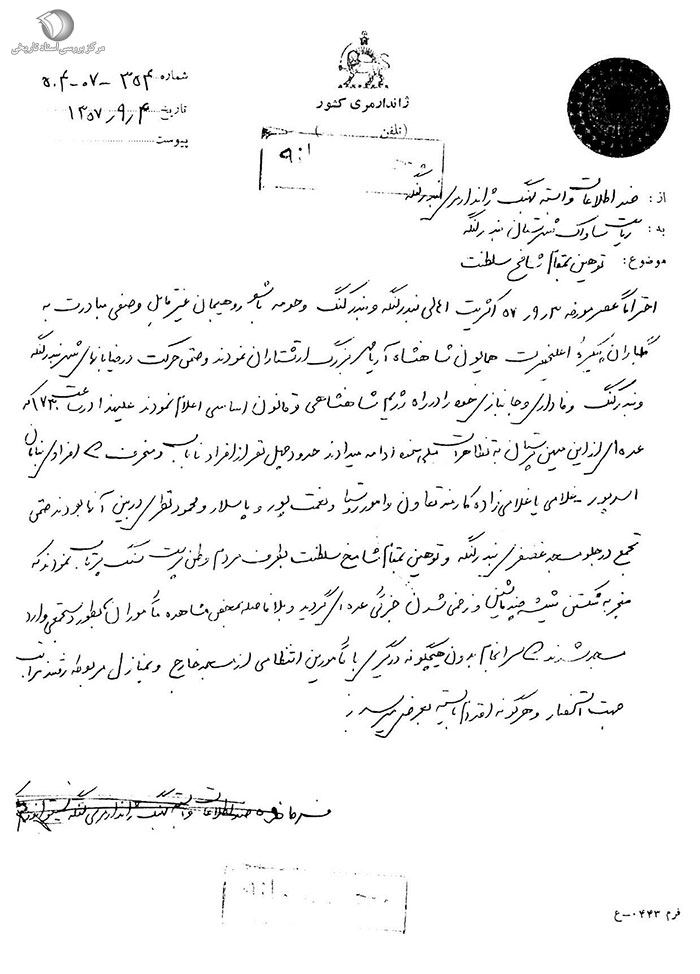 مرکز بررسی اسناد تاریخی
ژاندارمری کشور
(تلفن )
شماره ۳۵۴-۰۷-۵۰۴
تاریخ ۱۳۵۷٫۹٫۴
پیوست
از: ضد اطلاعات وابسته ژاندارمری بندرلنگه
به: ریاست ساواک شهرستان بندرلنگه
موضوع: توهین بمقام شامخ سلطنت
احتراماً عصر مورخه ۵۷٫۹٫۳ اکثریت اهالی بندرلنگه و بندرکنگ و حومه با شور و هیجان غیرقابل وصفی مبادرت به
گلباران پیکره اعلیحضرت همایون شاهنشاه آریامهر بزرگ ارتشتاران نمودند و ضمن حرکت در خیابانهای شهر بندرلنگه
و بندرکنگ وفاداری و جانبازی خود را در راه رژیم شاهنشاهی و قانون اساسی اعلام نمودند علیهذا در ساعت ۱۷۳۰ که
عده‌ای از این میهن پرستان به تظاهرات ادامه میدادند حدود چهل نفر از افراد ناباب و منحرف که افرادی بنامان
اسدپور - غلامی یا غلامی‌زاده کارمند تعاون و امور روستا و نعمت پور و پاسلار و محمود نظری در بین آنها بودند ضمن
تجمع در جلو مسجد غضنفری بندرلنگه و توهین بمقام شامخ سلطنت بطرف مردم وطن پرست سنگ پرتاب نمودند که
منجر به شکستن شیشه چند ماشین و زخمی شدن جزئی عده‌ای گردید و بلافاصله بمحض مشاهده مأموران بطور دستجمعی وارد
مسجد شدند که سرانجام بدون هیچگونه درگیری با مأمورین انتظامی از مسجد خارج و بمنازل مربوطه رفتند مراتب
جهت استحضار و هرگونه اقدام بایسته بعرض میرسد
فرمانده ضد اطلاعات وابسته ژاندارمری لنگه
فرم ۰۴۴۳-ع